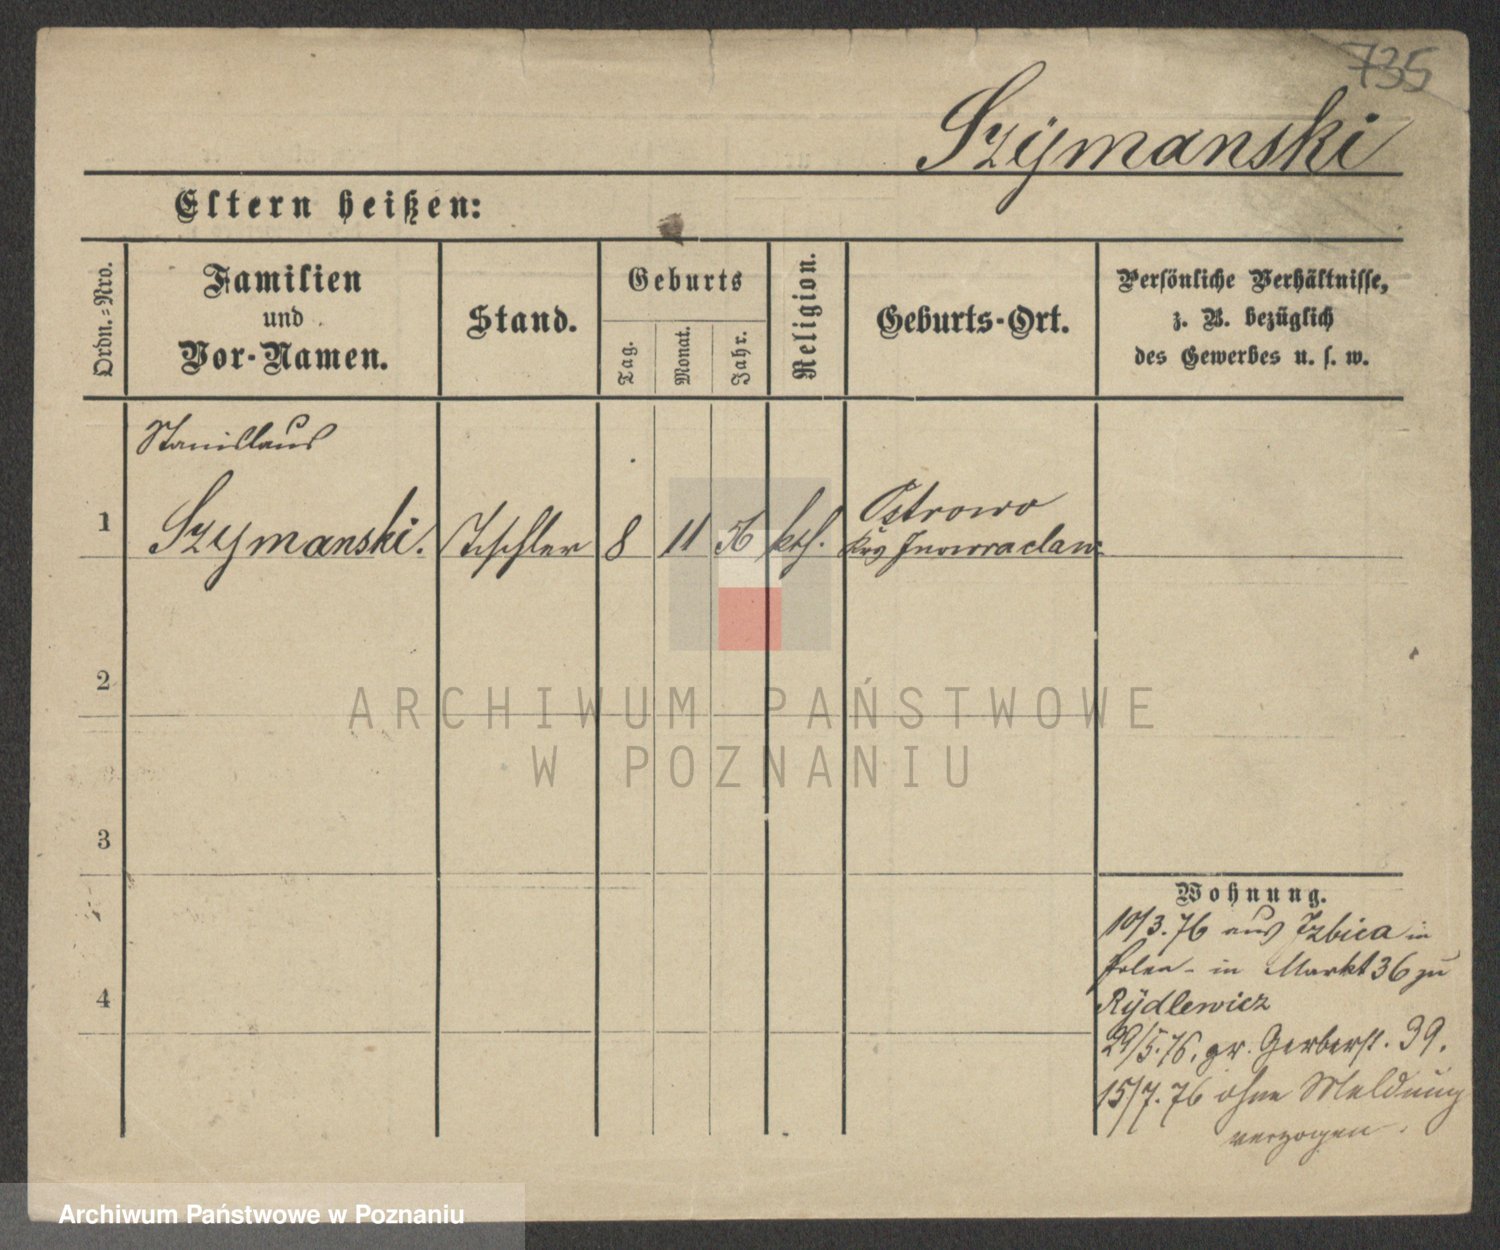 735
Szÿmanski
Eltern heißen:
Ordn.=Nro.
Familien
und
Vor-Namen.
Stand.
Geburts
Tag.
Monat.
Jahr.
Religion.
Geburts-Ort.
Persönliche Verhältnisse,
z. B. bezüglich
des Gewerbes u. s. w.
Stanislaus
1 Szymanski. Tischler 8 11 56 kth. Ostrowo
Krs Inowraclaw
2
3
4
Wohnung.
10/3.76 aus Izbica in
Polen - in Markt 36 zu
Rÿdlewicz
29/5.76. gr. Gerberst. 39.
15/7.76 ohne Meldung
verzogen.
ARCHIWUM PAŃSTWOWE
W POZNANIU
Archiwum Państwowe w Poznaniu